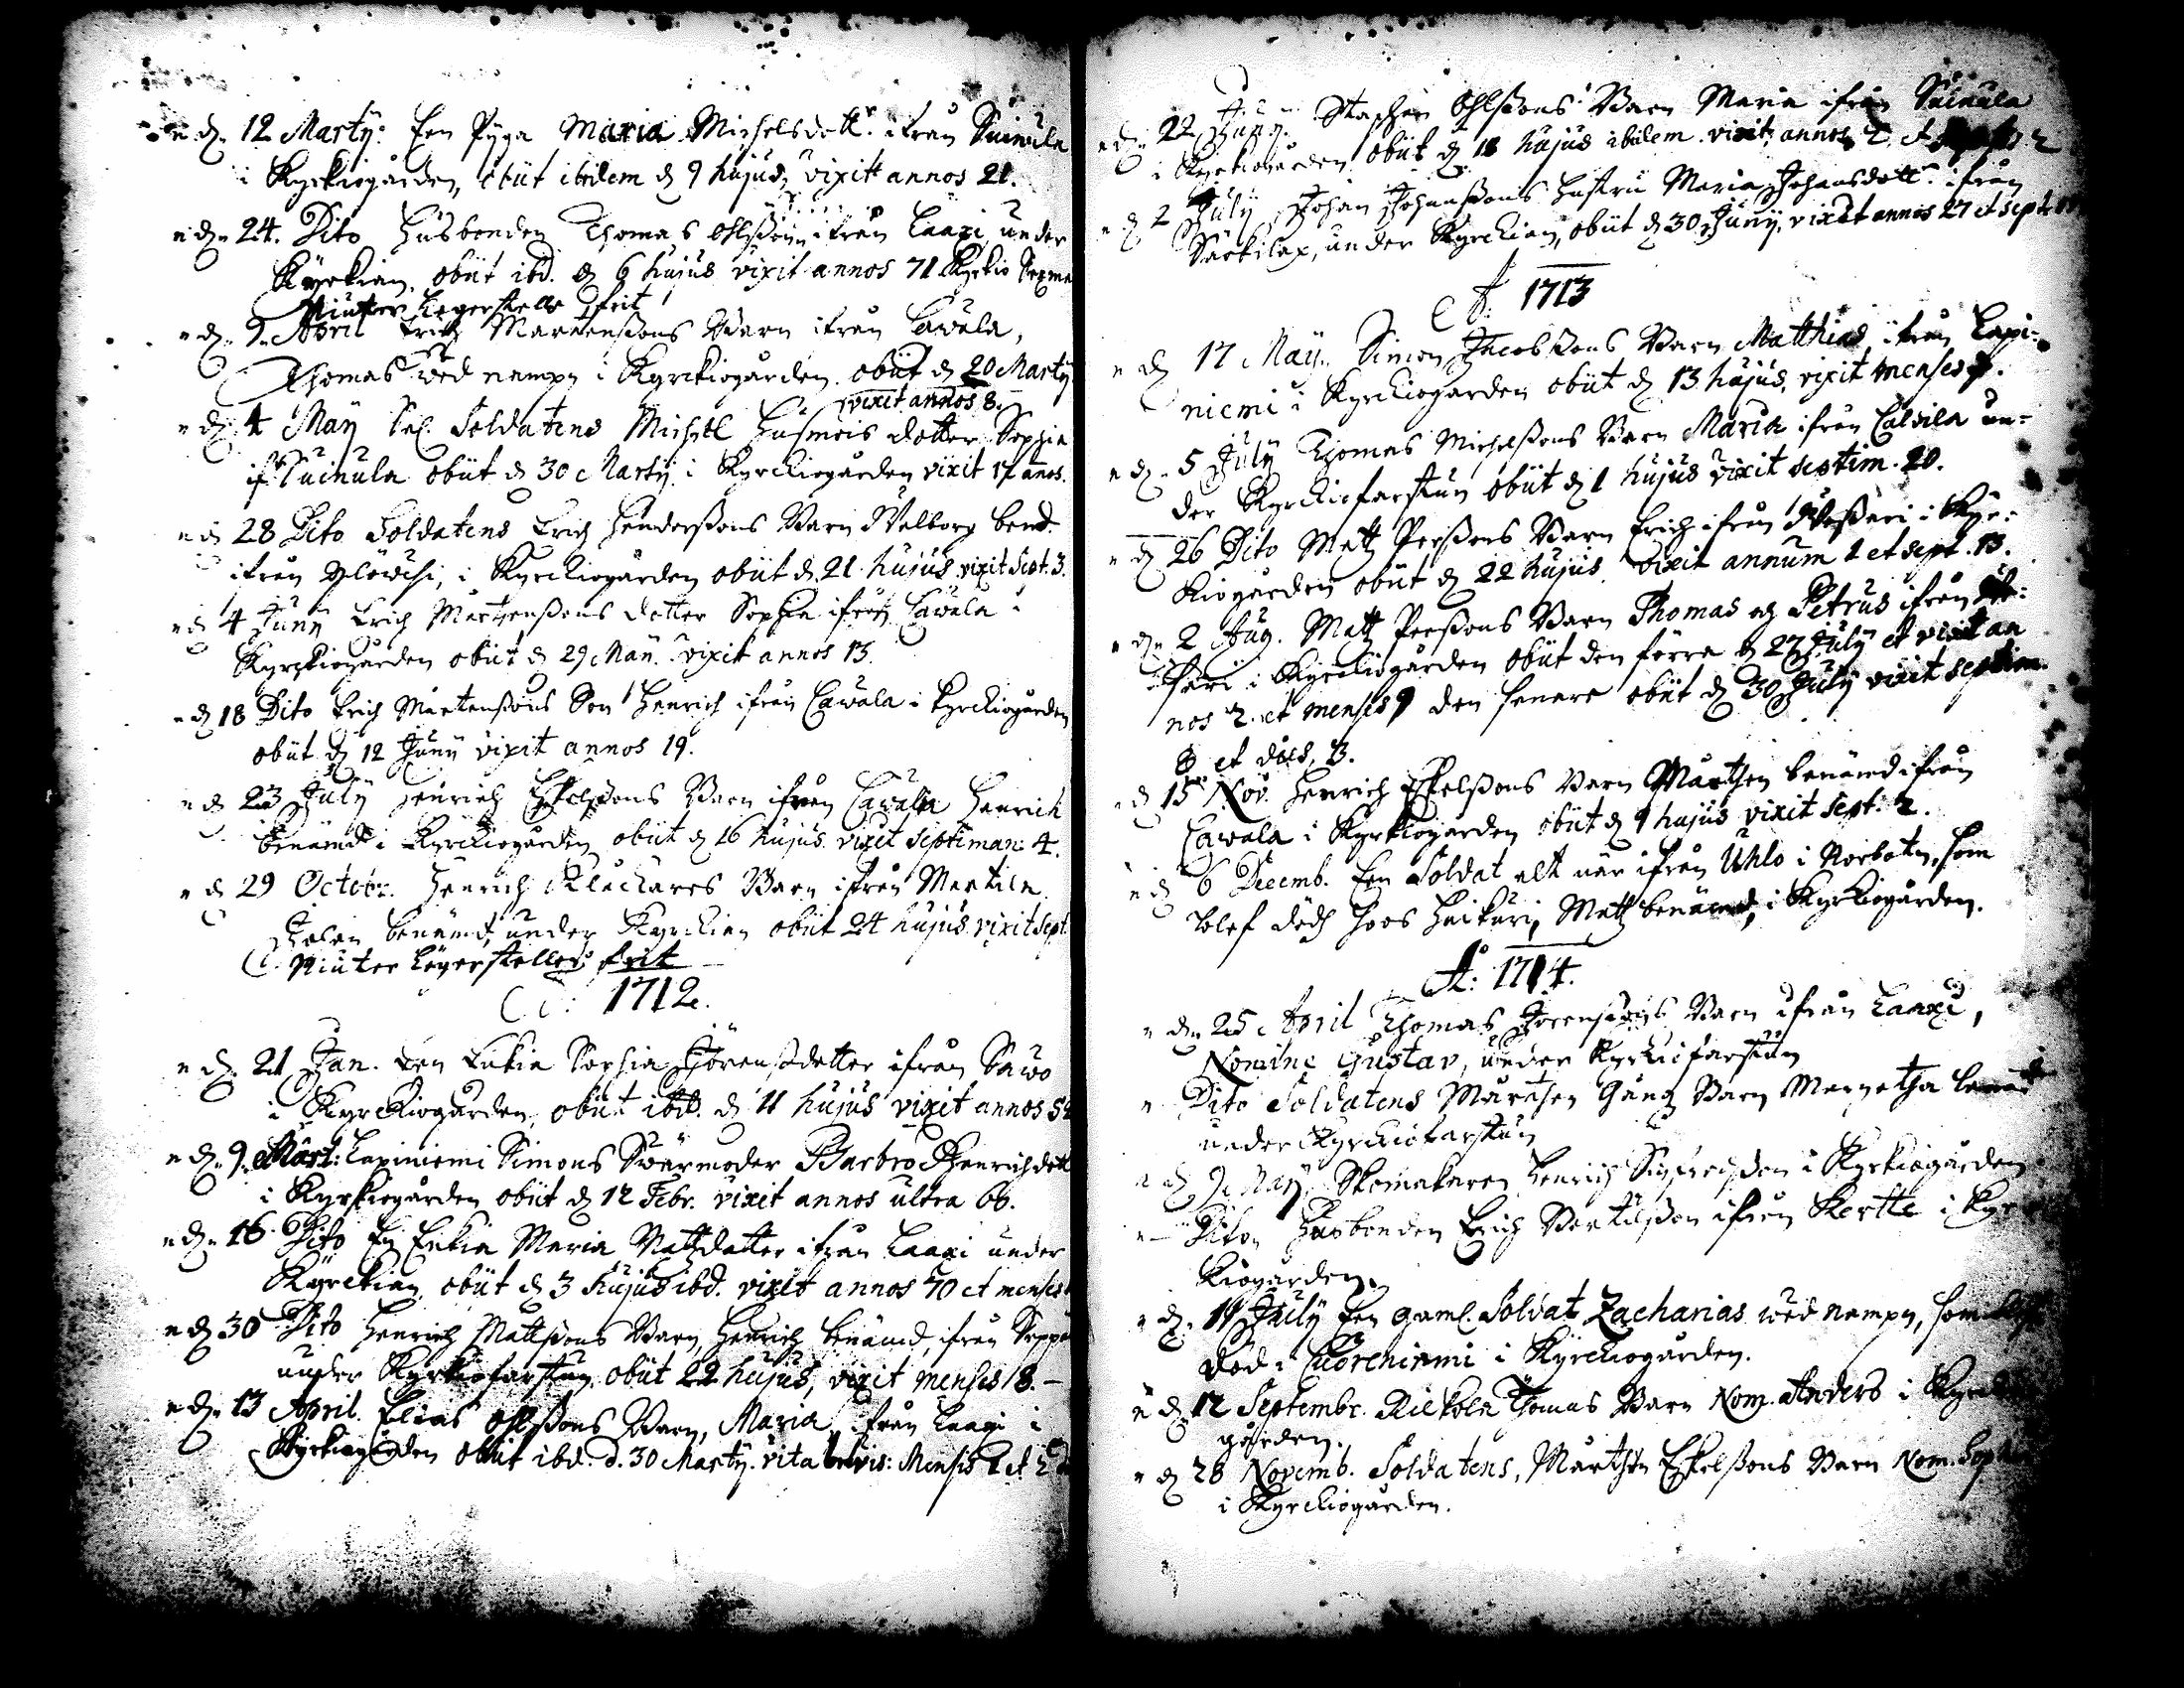 d. 12 Martÿ: Een Pÿga Maria Michelsdottr. ifrån Suinula
i Kyrkiogården, obiit ibidem d. 9 hujus, vixit annos 21.
d. 24. Dito Husbonden Thomas Ohlsson ifrån Laaxi, under
Kyrkian, obiit ibd. d. 6 hujus vixit annos 71 Kyrkio Sexman
Niuter Legerstelle frit
d. 9. April Erich Mårtenssons Barn ifrån Cawala,
Thomas wed nampn i Kyrkiogården. obiit d. 20 Martÿ
vixit annos 8.
d. 4 Maÿ Sal. Soldatens Michell dotter Sophia
if. Suinula obiit d. 30 Martÿ i Kyrckiogården vixit 17 annos.
d. 28 Dito Soldatens Erich Henderssons Barn Walborg bend.
ifrån Ylöwesi, i Kyrckiogården obiit d. 21. hujus. vixit Sept. 3.
d. 4 Junÿ Erich Mårtenssons dotter Sophia ifrån Cawala i
Kyrckiogården obiit d. 29 Maÿ. vixit annos 13.
d. 18 Dito Erich Mårtenssons Son Henrich ifrån Cawala i Kyrckiogården
obiit d. 12 Junÿ vixit annos 19.
d. 23 Julÿ Henrich Eskelssons Barn ifrån Cawala Henrich
benämd i Kyrckiogården obiit d. 16 hujus. vixit septiman: 4.
d. 29 Octobr. Henrich Barn ifrån Martila
benämd, under Kyrckian obiit 24 hujus. vixit sept.
Niuter Legerstelle frit
A: 1712.
d. 21 Jan. Een Enkia Sophia Jörenssdotter ifrån Sawo
i Kyrckiogården, obiit ibd. d. 11 hujus vixit annos 54
d. 9. Mart: Lapiniemi Simons Swärmoder Barbro Henrichsdott
i Kyrkiogården obiit d. 12 Febr. vixit annos ultra 60.
d. 16. Dito En Enkia Maria Matzdotter ifrån Laaxi under
Kyrckian, obiit d. 3 hujus ibd. vixit annos 70 et menses
d. 30 Dito Henrich Mattssons Barn, Henrich benämd, ifrån Seppä
under Kyrkiofarstun, obiit 22 hujus, vixit menses 18.
d. 13 April. Elias Ohlssons Barn, Maria, ifrån Laaxi i
Kyrkiogården obiit ibd. d. 30 Martÿ. vita brevis: Mensis 1 et 2
d. 22 Junÿ. Staphan Ohlssons Barn Maria ifrån Suinula
i Kyrckiogården obiit d. 18 hujus ibidem. vixit annos 2. et 2
d. 2 Julÿ Johan Johanssons hustru Maria Johansdottr. ifrån
Särkilax, under Kyrckian, obiit d. 30 Junÿ, vixit annos 27 et sept.
A: 1713
d. 17 Maÿ. Simon Jacobssons Barn Matthias, ifrån Lapi-
niemi i Kyrckiogården obiit d. 13 hujus, vixit menses
d. 5 Julÿ Thomas Michelssons Barn Maria ifrån Calvila un-
der Kyrckiofarstun obiit d. 1 hujus vixit septim. 20.
d. 26 Dito Matz Perssons Barn Erich ifrån i Kyr-
kiogården obiit d. 22 hujus. vixit annum 1 et sept. 13.
d. 2 Aug. Matz Perssons Barn Thomas och Petrus ifrån
i Kyrckiogården obiit den förra d. 27 Julÿ et vixit an
nos 2. et menses 9 den senare obiit d. 30 Julÿ vixit septim.
8 et dies, 3.
d. 15 Nov. Henrich Eskelssons Barn Mårthen benämd ifrån
Cawala i Kyrkiogården obiit d. 9 hujus vixit sept. 2.
d. 6 Decemb. Een Soldat ifrån Uhlo i Norbotn, som
blef dödh hoos Haikari, Matz benämd, i Kyrkiogården.
A: 1714.
d. 25 April Thomas Jörenssons Barn ifrån Laaxi,
Nomine Gustav, under Kyrkiofarstun
Dito Soldatens Mårthen Gång Barn Margetha benämd
under Kyrckiofarstun
d. 9 Maÿ Skomakaren Henrich Sigfredsson i Kyrkiogården
Dito, Husbonden Erich Bertilsson ifrån Kertte i Kyr
kiogården.
d. 11 Julÿ Een gaml. Soldat Zacharias wed nampn, som blef
död i Cuoreniemi i Kyrckiogården.
d. 12 Septembr. Rickola Thomas Barn Nom. Anders i Kyrckio
gården.
d. 28 Novemb. Soldatens, Mårthen Eskelssons Barn Nom. Sophia
i Kyrckiogården.